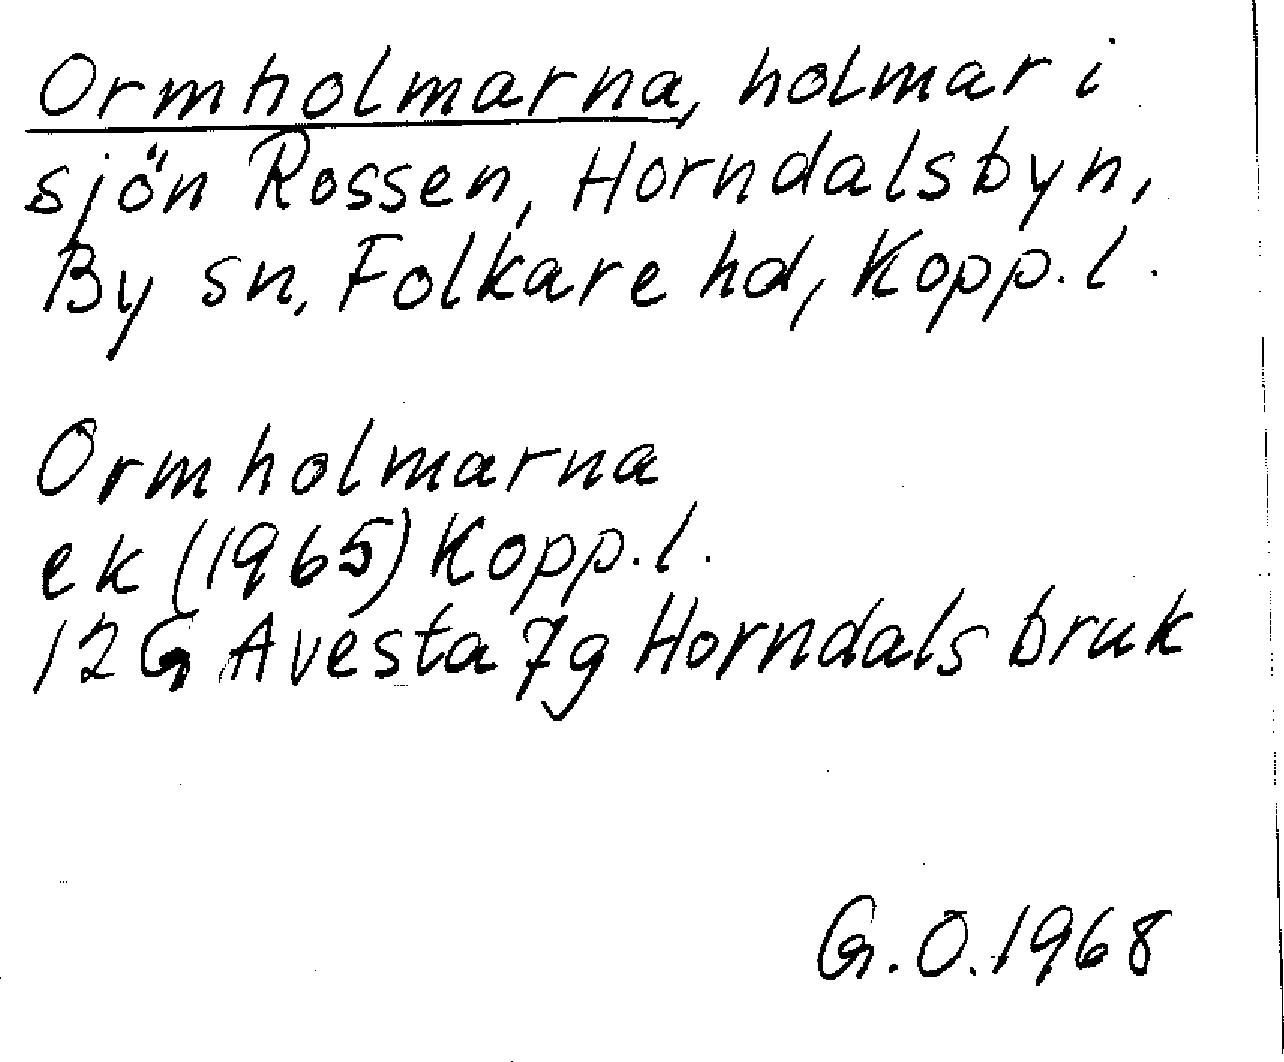 Ormholmarna, holmar i
sjön Rossen, Horndalsbyn,
By sn, Folkare hd, Kopp.l.
Ormholmarna
ek (1965) Kopp.l.
12G Avesta 7g Horndals bruk
G.O.1968